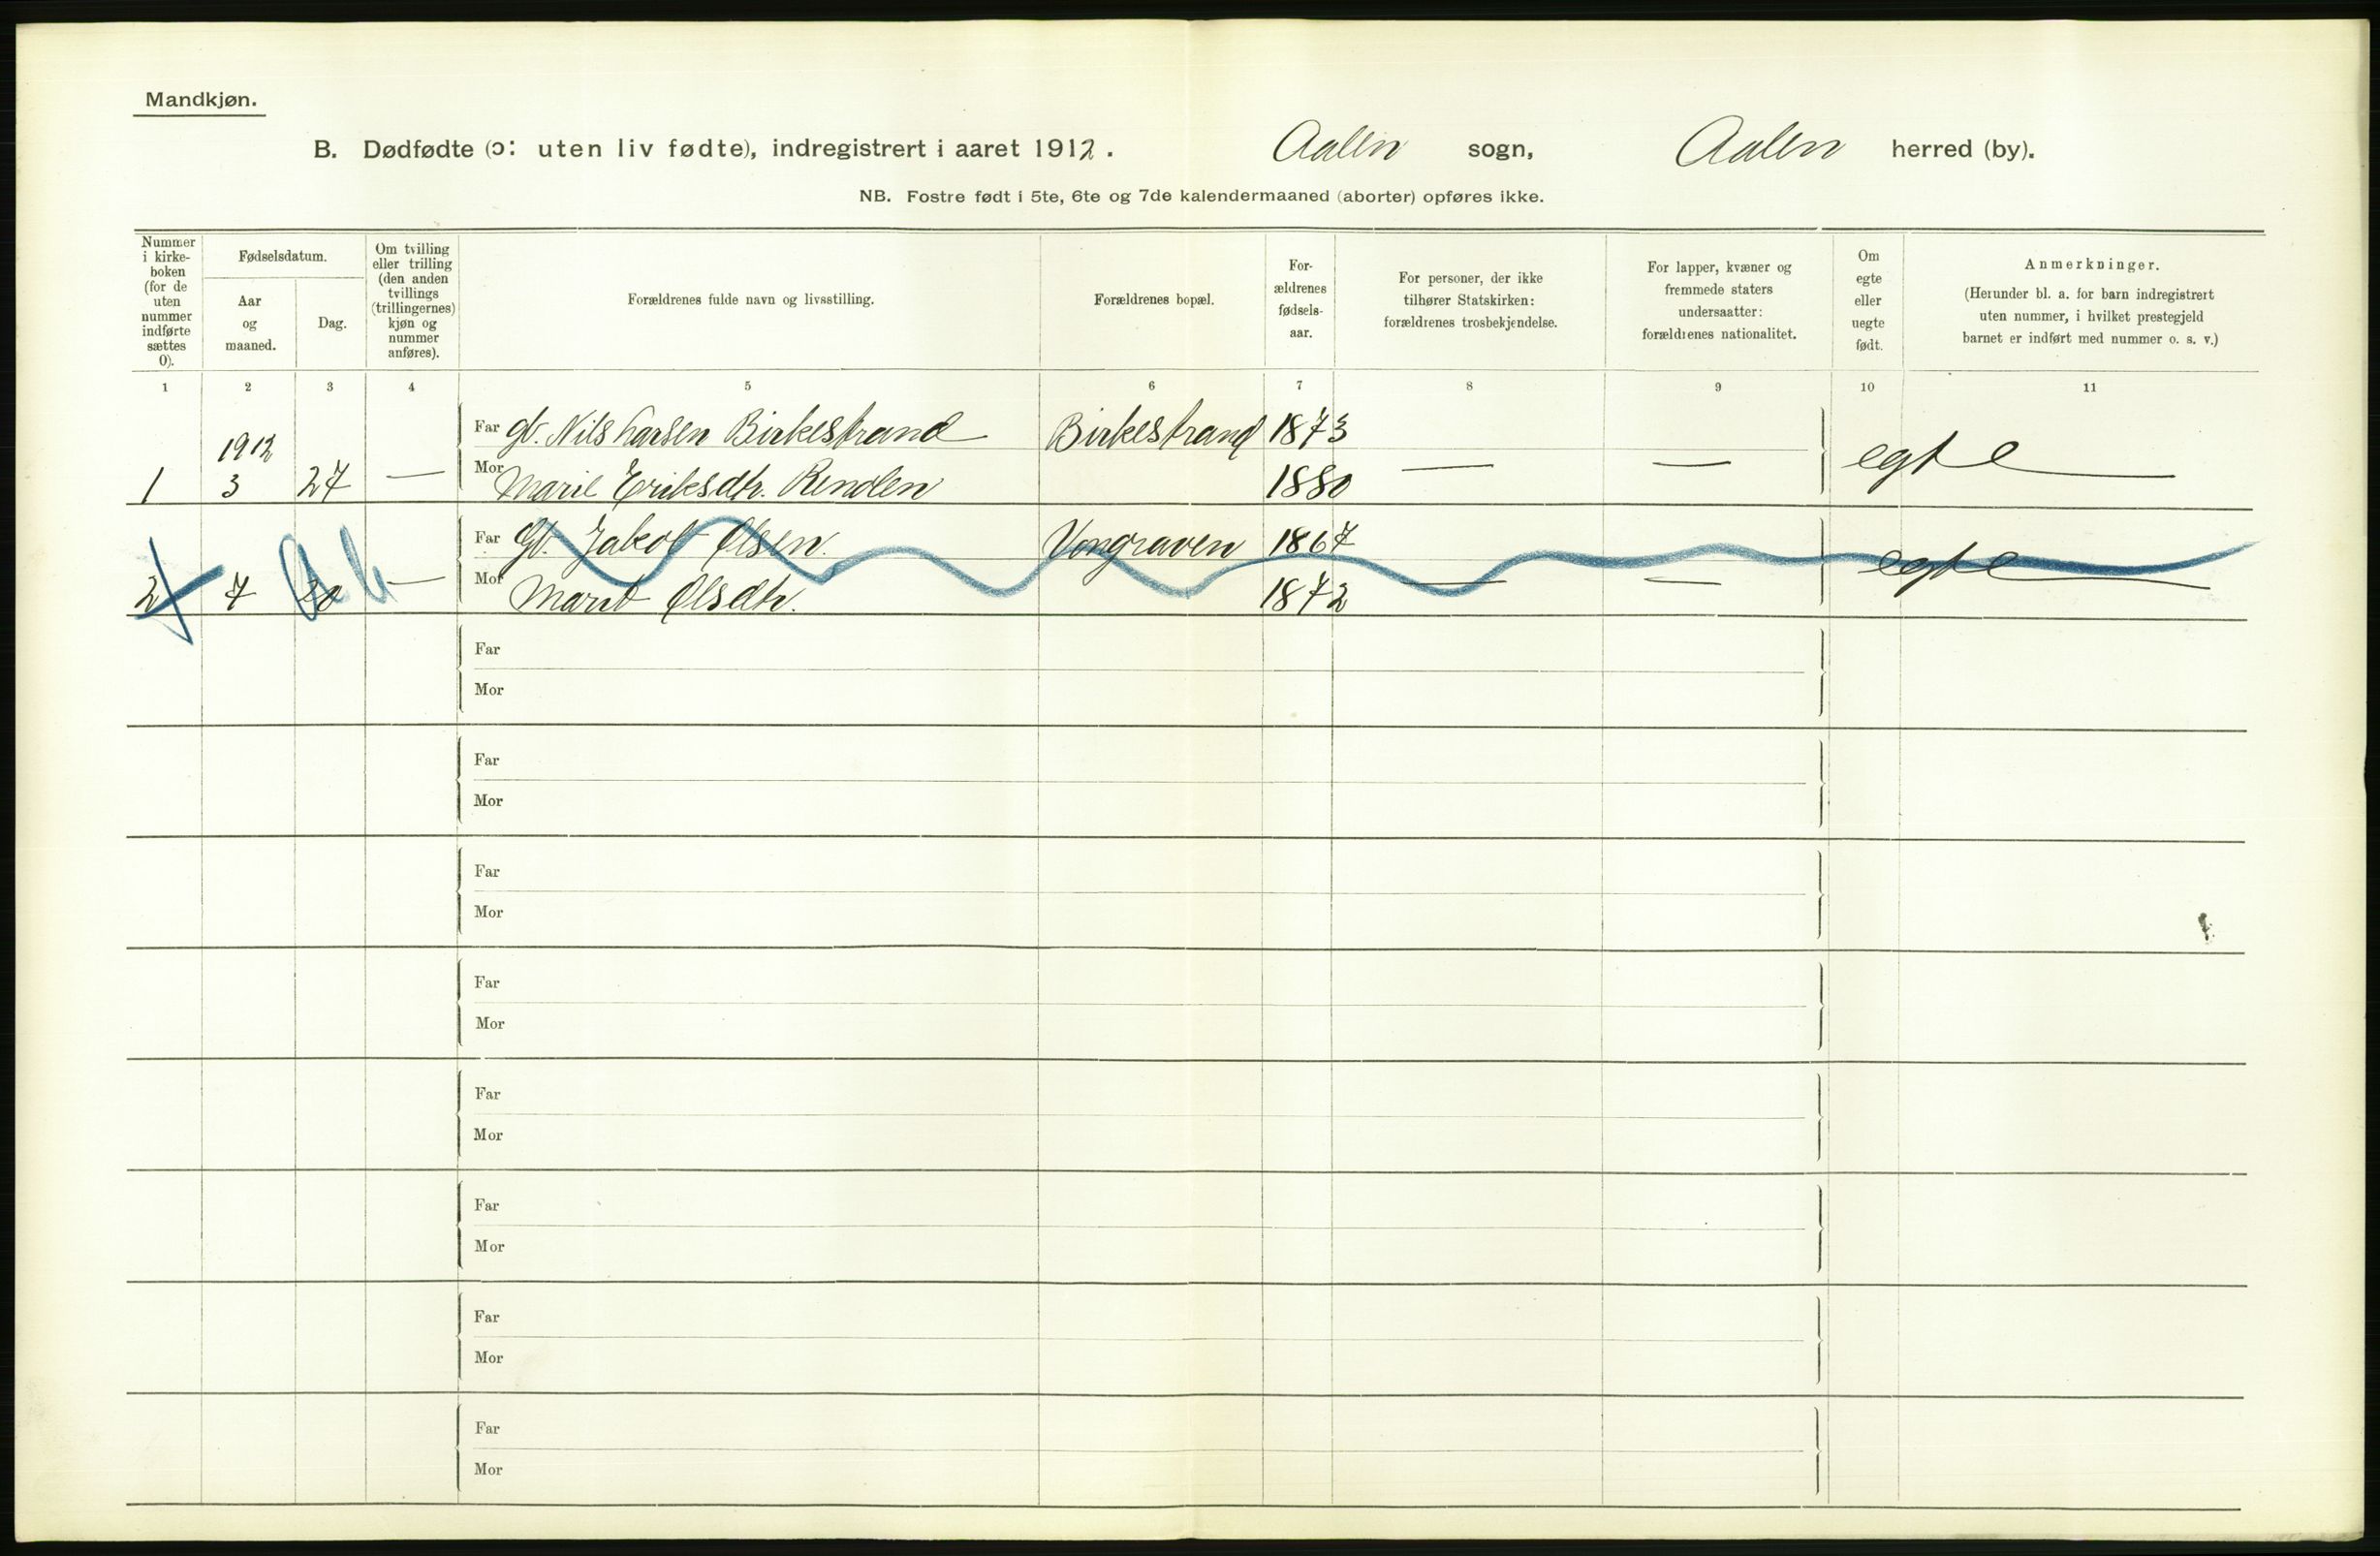 Mandkjøn.
B. Dødfødte (ɔ: uten liv fødte), indregistrert i aaret 1912. Aalen sogn, Aalen herred (by).
NB. Fostre født i 5te, 6te og 7de kalendermaaned (aborter) opføres ikke.
Nummer
i kirke-
boken
(for de
uten
nummer
indførte
sættes
0).
Fødselsdatum.
Aar
og
maaned.
Dag.
Om tvilling
eller trilling
(den anden
tvillings
(trillingernes)
kjøn og
nummer
anføres).
Forældrenes fulde navn og livsstilling.
Forældrenes bopæl.
For-
ældrenes
fødsels-
aar.
For personer, der ikke
tilhører Statskirken:
forældrenes trosbekjendelse.
For lapper, kvæner og
fremmede staters
undersaatter:
forældrenes nationalitet.
Om
egte
eller
uegte
født.
Anmerkninger.
(Herunder bl. a. for barn indregistrert
uten nummer, i hvilket prestegjeld
barnet er indført med nummer o. s. v.)
1 2 3 4 5 6 7 8 9 10 11
Far gb. Nils Larsen Birkestrand Birkestrand 1873
1912
1 3 27 — Mor Marie Eriksdtr. Renolen 1880 — — egte
Far Gb. Jakob Olsen. Vongraven 1867
2 7 20 — Mor Marit Olsdtr. 1872 — — egte
Far
Mor
Far
Mor
Far
Mor
Far
Mor
Far
Mor
Far
Mor
Far
Mor
Far
Mor